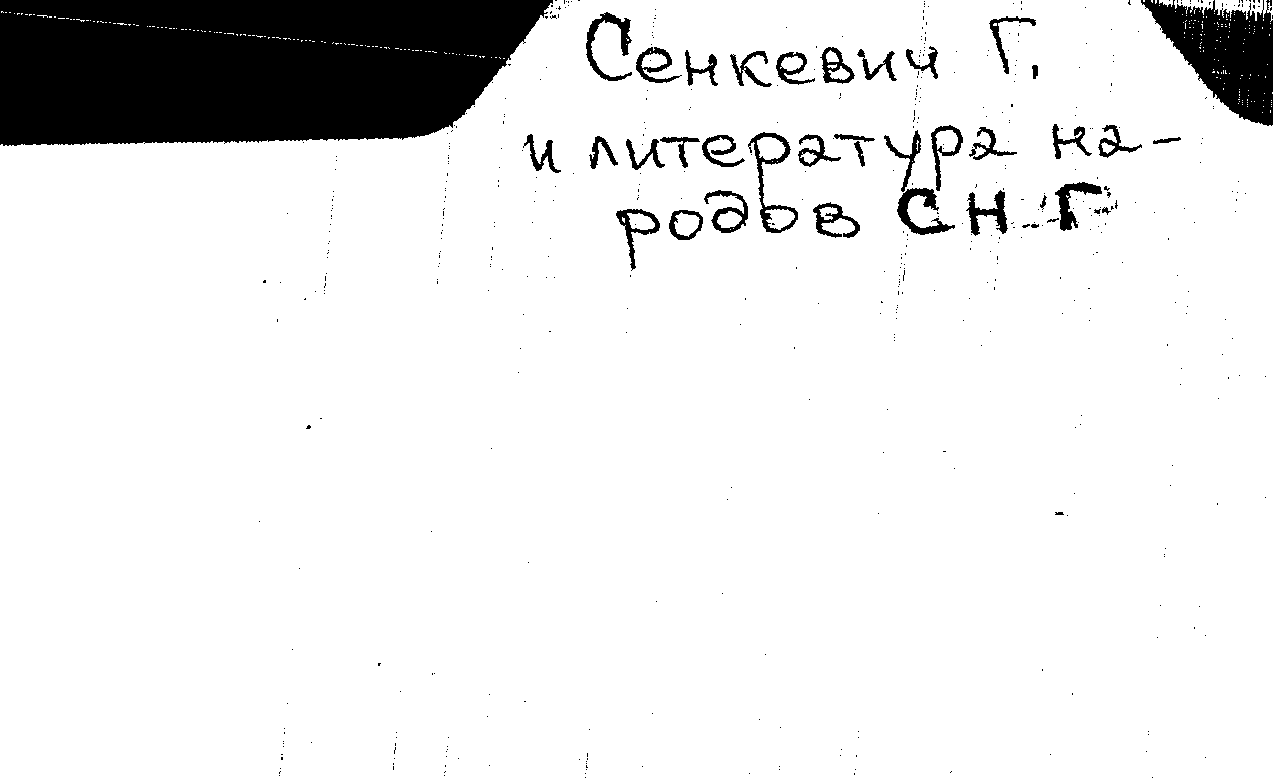 Сенкевич Г.
и литература на-
родов СНГ